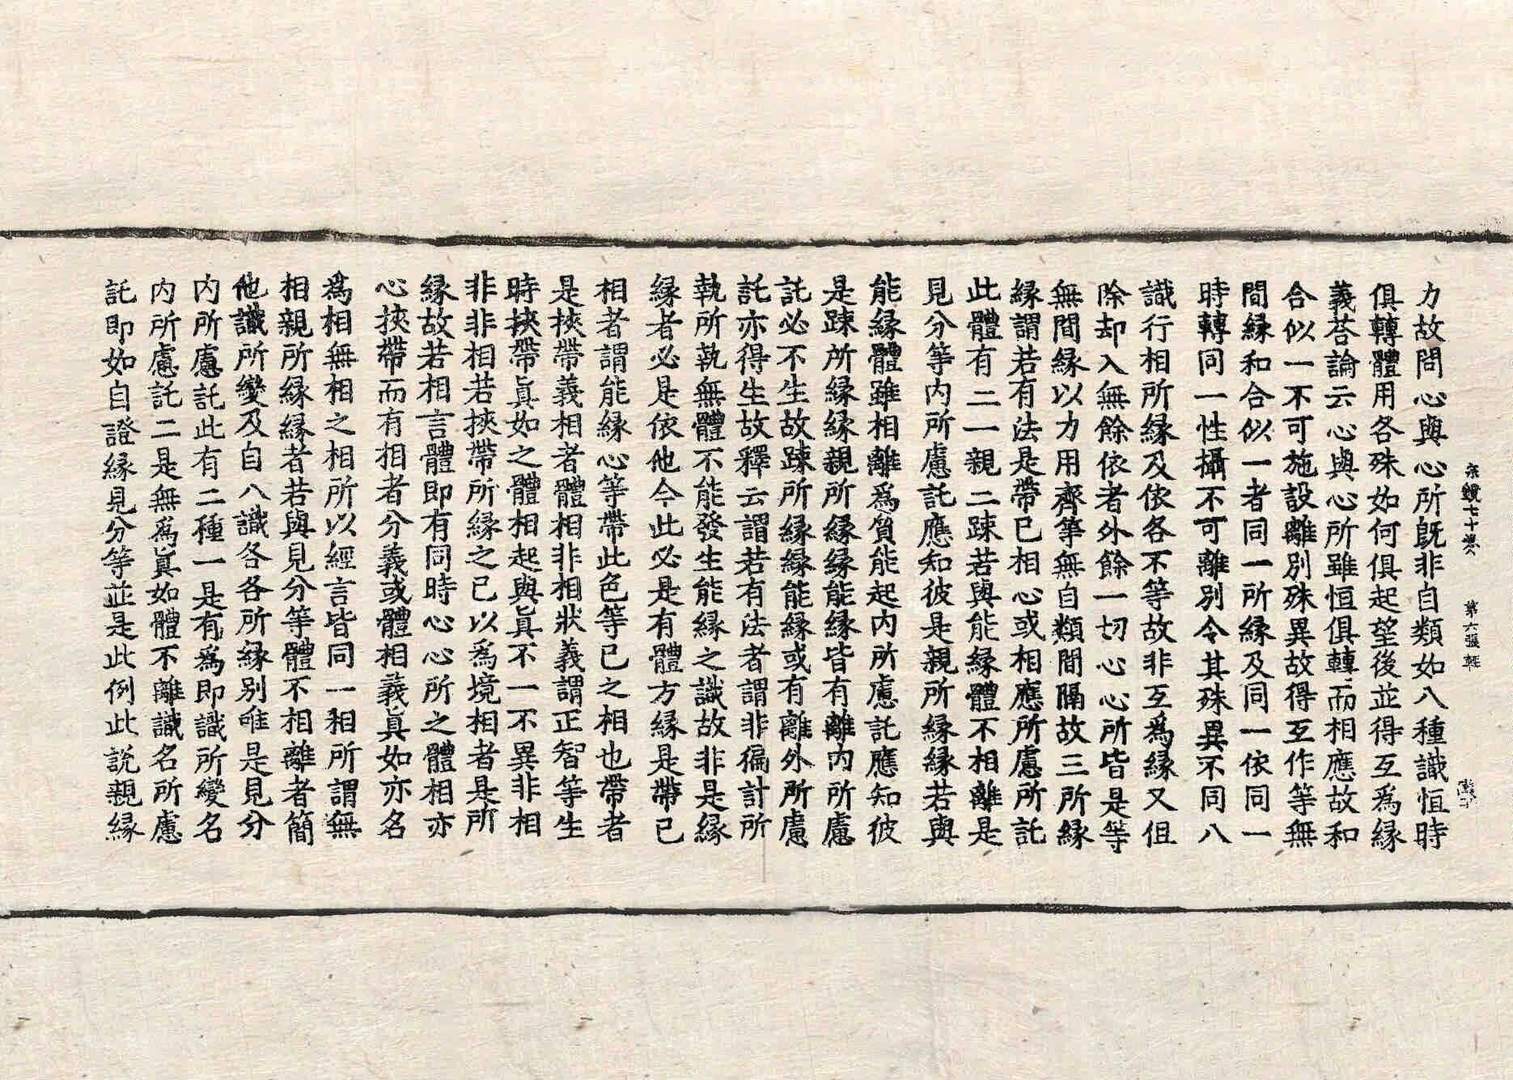 力故問心與心所旣非自類如八種識恒時
俱轉體用各殊如何俱起望後並得互爲緣
義荅論云心與心所雖恒俱轉而相應故和
合似一不可施設離別殊異故得互作等無
間緣和合似一者同一所緣及同一依同一
時轉同一性攝不可離別令其殊異不同八
識行相所緣及依各不等故非互爲緣又伹
除却入無餘依者外餘一切心心所皆是等
無間緣以力用齊等無自類間隔故三所緣
緣謂若有法是帶已相心或相應所慮所託
此體有二一親二踈若與能緣體不相離是
見分等內所慮託應知彼是親所緣緣若與
能緣體雖相離爲質能起內所慮託應知彼
是踈所緣緣親所緣緣能緣皆有離內所慮
託必不生故踈所緣緣能緣或有離外所慮
託亦得生故釋云謂若有法者謂非徧計所
執所執無體不能發生能緣之識故非是緣
緣者必是依他今此必是有體方緣是帶已
相者謂能緣心等帶此色等已之相也帶者
是挾帶義相者體相非相狀義謂正智等生
時挾帶眞如之體相起與眞不一不異非相
非非相若挾帶所緣之已以爲境相者是所
緣故若相言體即有同時心心所之體相亦
心挾帶而有相者分義或體相義眞如亦名
爲相無相之相所以經言皆同一相所謂無
相親所緣緣者若與見分等體不相離者簡
他識所變及自八識各各所緣別唯是見分
內所慮託此有二種一是有爲即識所變名
內所慮託二是無爲眞如體不離識名所慮
託即如自證緣見分等並是此例此說親緣
第六張 輕